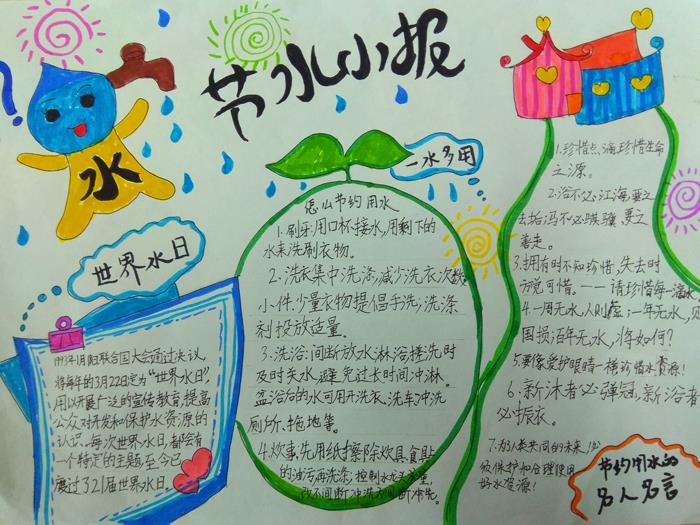 节水小报
水
世界水日
1993年1月18日联合国大会通过决议,
将每年的3月22日定为“世界水日”,
用以开展广泛的宣传教育,提高
公众对开发和保护水资源的
认识。每次世界水日,都会有
一个特定的主题,至今已
度过321届世界水日。
一水多用
怎么节约用水
1.刷牙:用口杯接水,用剩下的
水来洗刷衣物。
2.洗衣集中洗涤,减少洗衣次数;
小件.少量衣物提倡手洗;洗涤
剂投放适量。
3.洗浴:间断放水淋浴搓洗时
及时关水,避免过长时间冲淋。
盆浴后的水可用开洗衣、洗车冲洗
厕所、拖地等。
4.炊事,先用纸擦除炊具.食具
的油污再洗涤;控制水龙头流量,
改不间断冲洗为间断冲洗。
1.珍惜点滴,珍惜生命
之源。
2.浴不必江海,要之
去垢;马不必骐骥,要之
善走。
3.拥有时不知珍惜,失去时
方觉可惜。——请珍惜每一滴水
4.一周无水,人则
一年无水,
国损;百年无水,将如何?
5.要像爱护眼睛一样珍惜水资源!
6.新沐者必弹冠,新浴者
必振衣。
7.为人类共同的未来,
保护和合理使用
好水资源!
节约用水的
名人名言